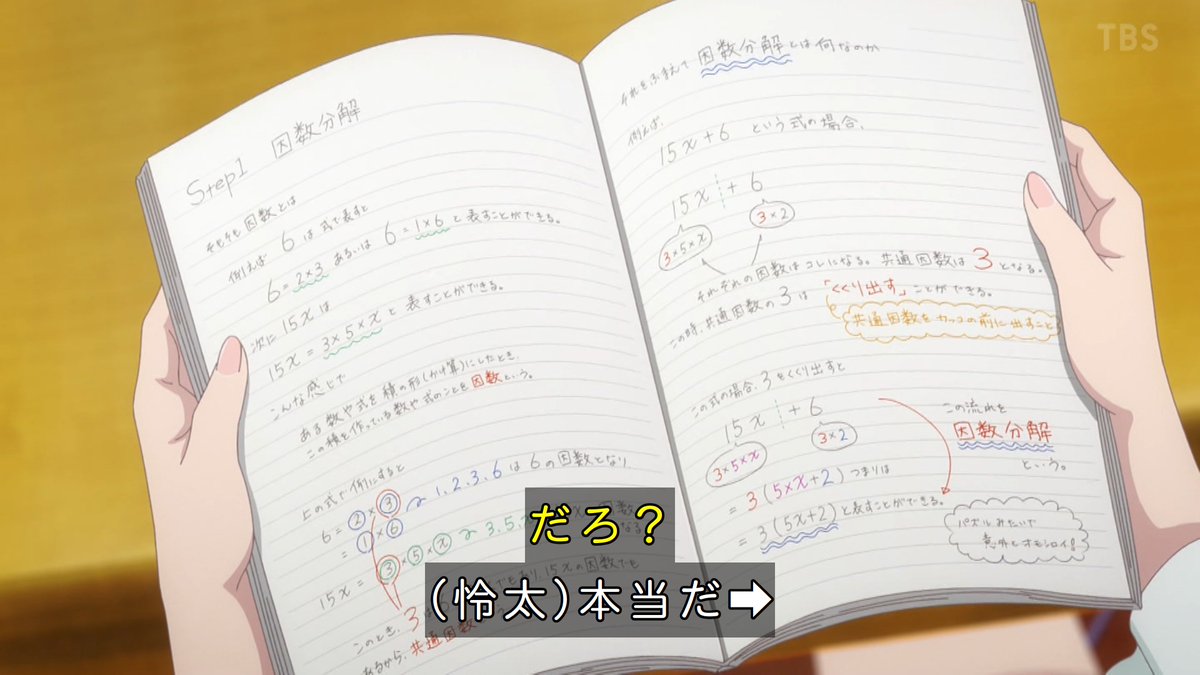 TBS
Step1 因数分解
そもそも因数とは
例えば 6は式で表すと
6=2×3 あるいは 6=1×6 と表すことができる。
次に 15xは
15x=3×5×x と表すことができる。
こんな感じで
ある数や式を積の形(かけ算)にしたとき、
この積を作っている数や式のことを因数という。
上の式で例にすると
6=②×③
=①×⑥ 〜1、2、3、6は6の因数となり
15x=③×⑤×ⓧ 〜3、5、
でもあり、15xの因数でも
このとき、3
あるから、共通因数
それをふまえて因数分解とは何なのか
例えば、
15x+6 という式の場合、
15x+6
3×5×x 3×2
それぞれの因数はコレになる。共通因数は3となる。
この時、共通因数の3は「くくり出す」ことができる。
共通因数をカッコの前に出すこと
この式の場合、3をくくり出すと
15x+6
3×5×x 3×2
=3(5×x+2) つまりは
=3(5x+2) と表すことができる。
この流れを
因数分解
という。
パズルみたいで
意外とオモシロイ!
だろ?
(怜太)本当だ➡